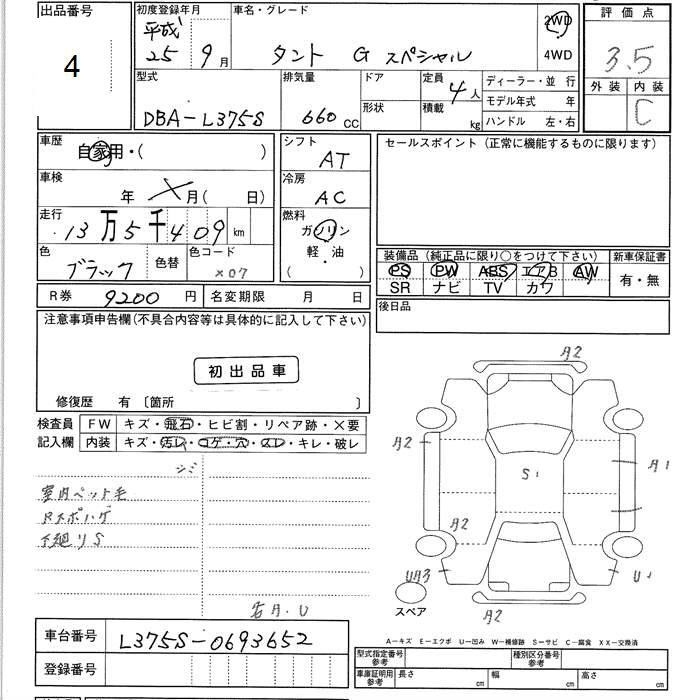 出品番号
4
初度登録年月
平成
25 9月
車名・グレード
タント G スペシャル
2WD
4WD
評価点
3.5
外装 内装
C
型式
DBA-L375S
排気量
660 cc
ドア
形状
定員
4人
積載
kg
ディーラー・並 行
モデル年式 年
ハンドル 左・右
車歴
自家用・( )
車検
年 X月( 日)
走行
13万5千409km
色
ブラック
色替
色コード
X07
シフト
AT
冷房
AC
燃料
ガソリン
軽・油
( )
セールスポイント(正常に機能するものに限ります)
装備品(純正品に限り○をつけて下さい)
PS PW ABS エアB AW
SR ナビ TV カワ
新車保証書
有・無
R券 9200 円
名変期限 月 日
後日品
注意事項申告欄(不具合内容等は具体的に記入して下さい)
初出品車
修復歴 有 〔箇所 〕
検査員
記入欄
FW キズ・飛石・ヒビ割・リペア跡・×要
内装 キズ・汚レ・コゲ・穴・スレ・キレ・破レ
シミ
室内ペット毛
Rスポハゲ
下廻りS
右A.U
A2
A2
S1
A1
A2
UA3
U1
A2
スペア
A−キズ E−エクボ U−凹み W−補修跡 S−サビ C−腐食 XX−交換済
車台番号 L375S-0693652
登録番号
型式指定番号
参考
種別区分番号
参考
車庫証明用
参考
長さ cm
幅 cm
高さ cm